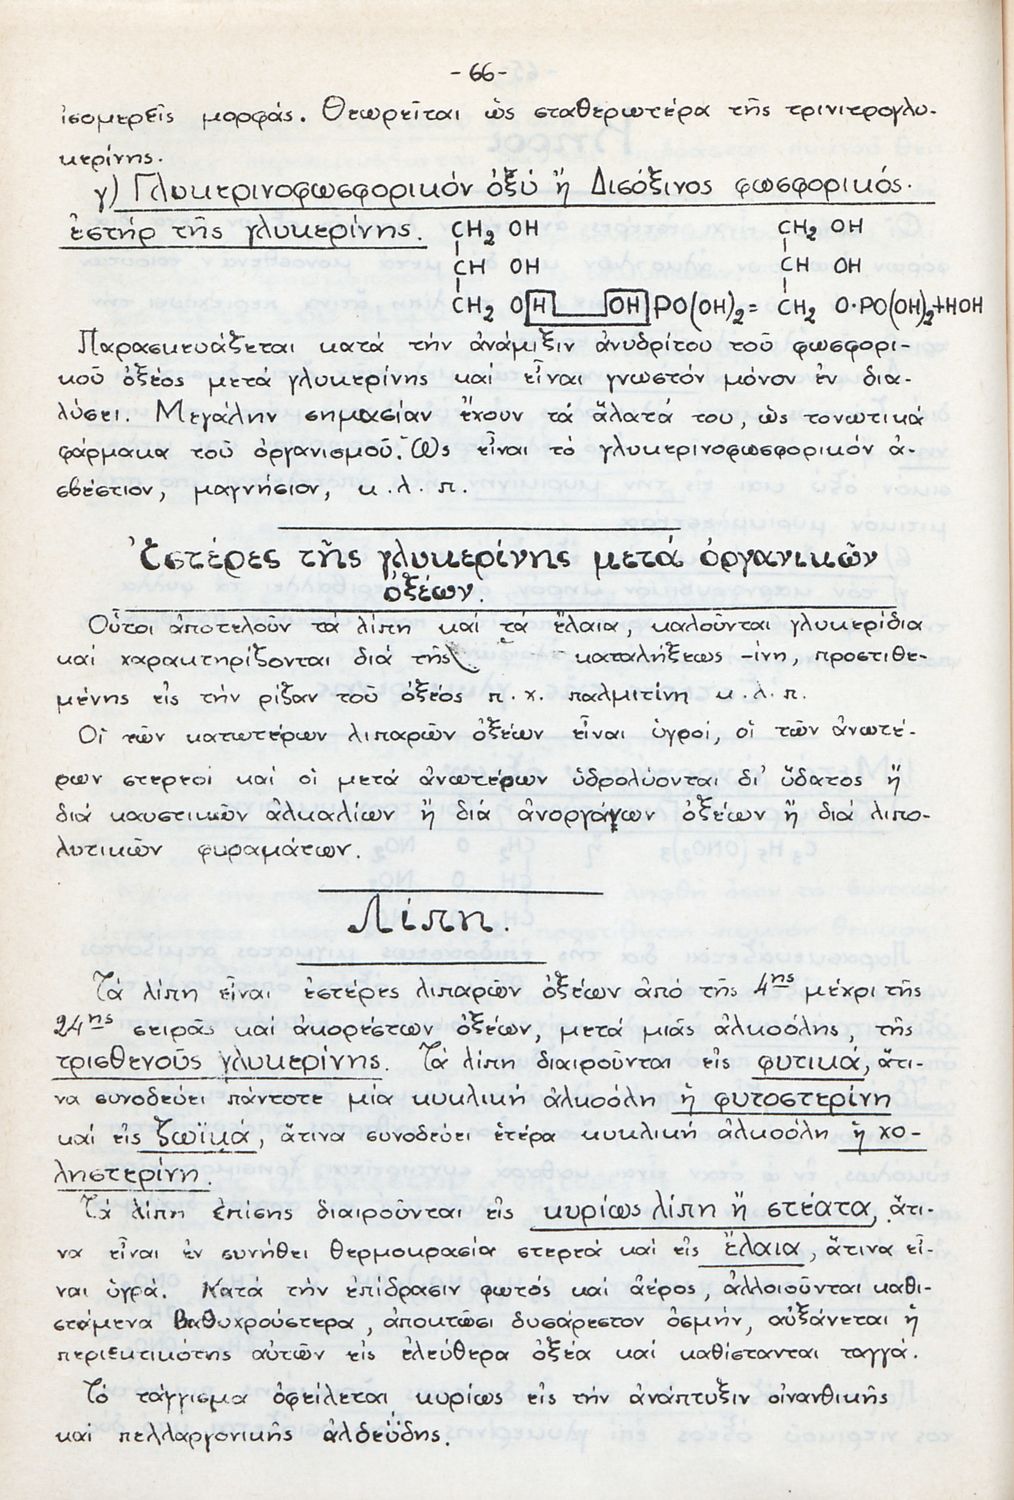 -66-
ἰσομερεῖς μορφάς. Θεωρεῖται ὡς σταθερωτέρα τῆς τρινιτρογλυ-
κερίνης.
γ) Γλυκερινοφωσφορικόν ὀξύ ἤ Δισόξινος φωσφορικός.
ἐστήρ τῆς γλυκερίνης. CH₂ OH CH₂ OH
CH OH CH OH
CH₂ OH OH PO(OH)₂ = CH₂ O·PO(OH)₂+HOH
Παρασκευάζεται κατά τήν ἀνάμιξιν ἀνυδρίτου τοῦ φωσφορι-
κοῦ ὀξέος μετά γλυκερίνης καί εἶναι γνωστόν μόνον ἐν δια-
λύσει. Μεγάλην σημασίαν ἔχουν τά ἅλατά του, ὡς τονωτικά
φάρμακα τοῦ ὀργανισμοῦ. Ὡς εἶναι τό γλυκερινοφωσφορικόν ἀ-
σβέστιον, μαγνήσιον, κ.λ.π.
Ἐστέρες τῆς γλυκερίνης μετά ὀργανικῶν
ὀξέων.
Οὗτοι ἀποτελοῦν τά λίπη καί τά ἔλαια, καλοῦνται γλυκερίδια
καί χαρακτηρίζονται διά τῆς καταλήξεως -ίνη, προστιθε-
μένης εἰς τήν ρίζαν τοῦ ὀξέος π.χ. παλμιτίνη κ.λ.π.
Οἱ τῶν κατωτέρων λιπαρῶν ὀξέων εἶναι ὑγροί, οἱ τῶν ἀνωτέ-
ρων στερεοί καί οἱ μετά ἀνωτέρων ὑδρολύονται δι' ὕδατος ἤ
διά καυστικῶν ἀλκαλίων ἤ διά ἀνοργάνων ὀξέων ἤ διά λιπο-
λυτικῶν φυραμάτων.
Λίπη.
Τά λίπη εἶναι ἐστέρες λιπαρῶν ὀξέων ἀπό τῆς 4ης μέχρι τῆς
24ης σειρᾶς καί ἀκορέστων ὀξέων, μετά μιᾶς ἀλκοόλης, τῆς
τρισθενοῦς γλυκερίνης. Τά λίπη διαιροῦνται εἰς φυτικά, ἅτι-
να συνοδεύει πάντοτε μία κυκλική ἀλκοόλη ἡ φυτοστερίνη
καί εἰς ζωϊκά, ἅτινα συνοδεύει ἑτέρα κυκλική ἀλκοόλη ἡ χο-
ληστερίνη.
Τά λίπη ἐπίσης διαιροῦνται εἰς κυρίως λίπη ἤ στέατα, ἅτι-
να εἶναι ἐν συνήθει θερμοκρασία στερεά καί εἰς ἔλαια, ἅτινα εἶ-
ναι ὑγρά. Κατά τήν ἐπίδρασιν φωτός καί ἀέρος, ἀλλοιοῦνται καθι-
στάμενα βαθυχρούστερα, ἀποκτῶσι δυσάρεστον ὀσμήν, αὐξάνεται ἡ
περιεκτικότης αὐτῶν εἰς ἐλεύθερα ὀξέα καί καθίστανται ταγγά.
Τό τάγγισμα ὀφείλεται κυρίως εἰς τήν ἀνάπτυξιν οἰνανθικῆς
καί πελλαργονικῆς ἀλδεΰδης.